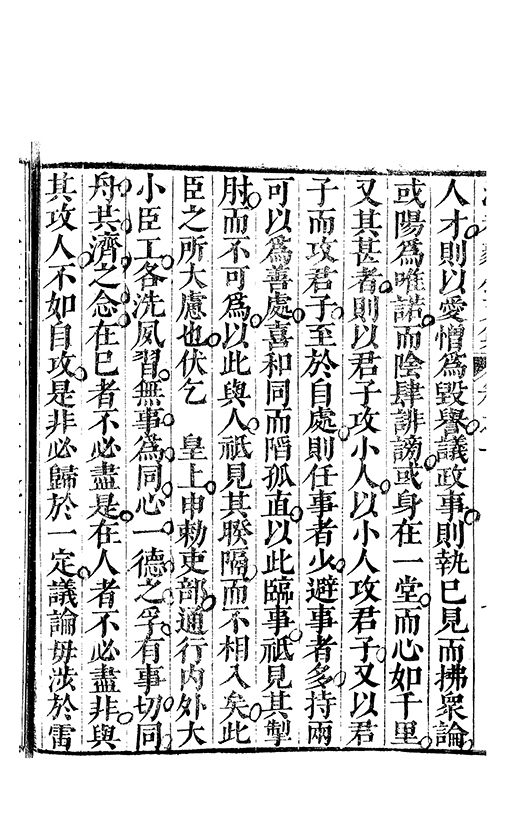 人才則以愛憎為毀譽議政事則執巳見而拂衆論
或陽為唯諾而陰肆誹謗或身在一堂而心如千里
又其甚者則以君子攻小人以小人攻君子又以君
子而攻君子至於自處則任事者少避事者多持兩
可以為善處喜和同而謟孤直以此臨事祇見其掣
肘而不可為以此與人祇見其睽隔而不相入矣此
臣之所大慮也伏乞　皇上申勅吏部通行內外大
小臣工各洗夙習無事為同心一德之孚有事切同
舟共濟之念在巳者不必盡是在人者不必盡非與
其攻人不如自攻是非必歸於一定議論毋涉於雷